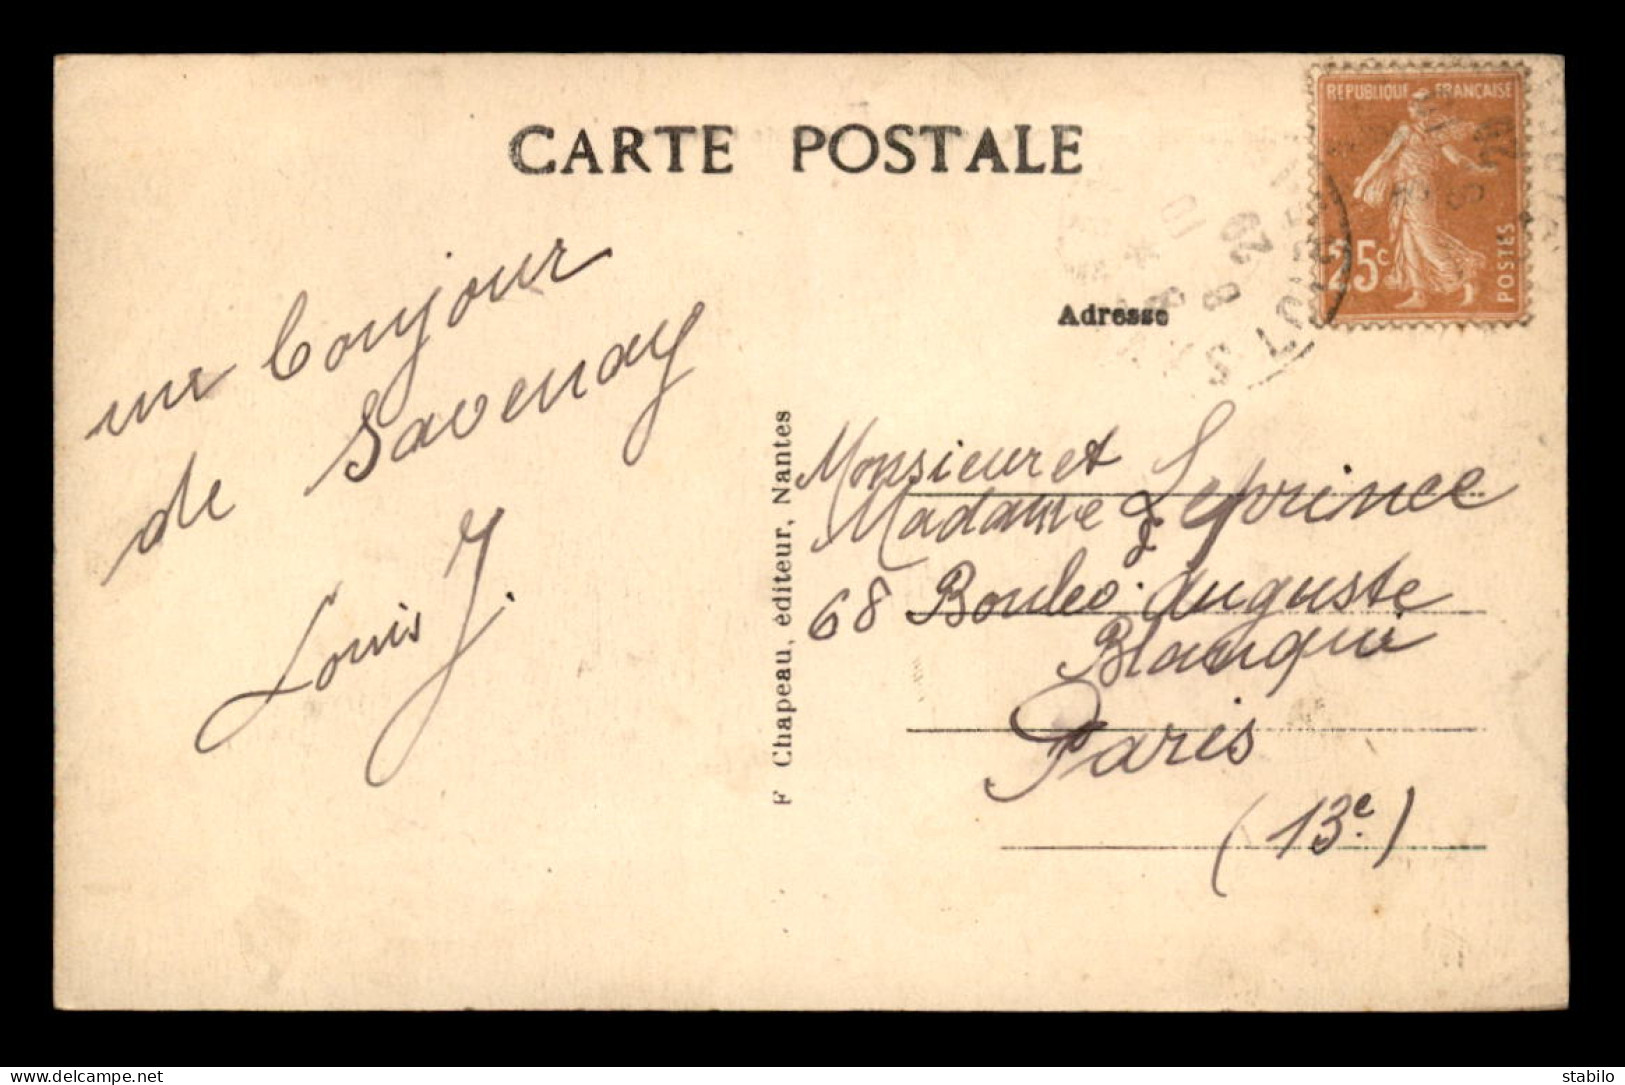 CARTE POSTALE
REPUBLIQUE FRANÇAISE
25c
POSTES
8 29
Adresse
un bonjour
de Savenay
Louis J.
F Chapeau, éditeur, Nantes
Monsieur et
Madame Leprince
68 Boulev. Auguste
Blanqui
Paris
(13e)
Delcampe.net
stabilo